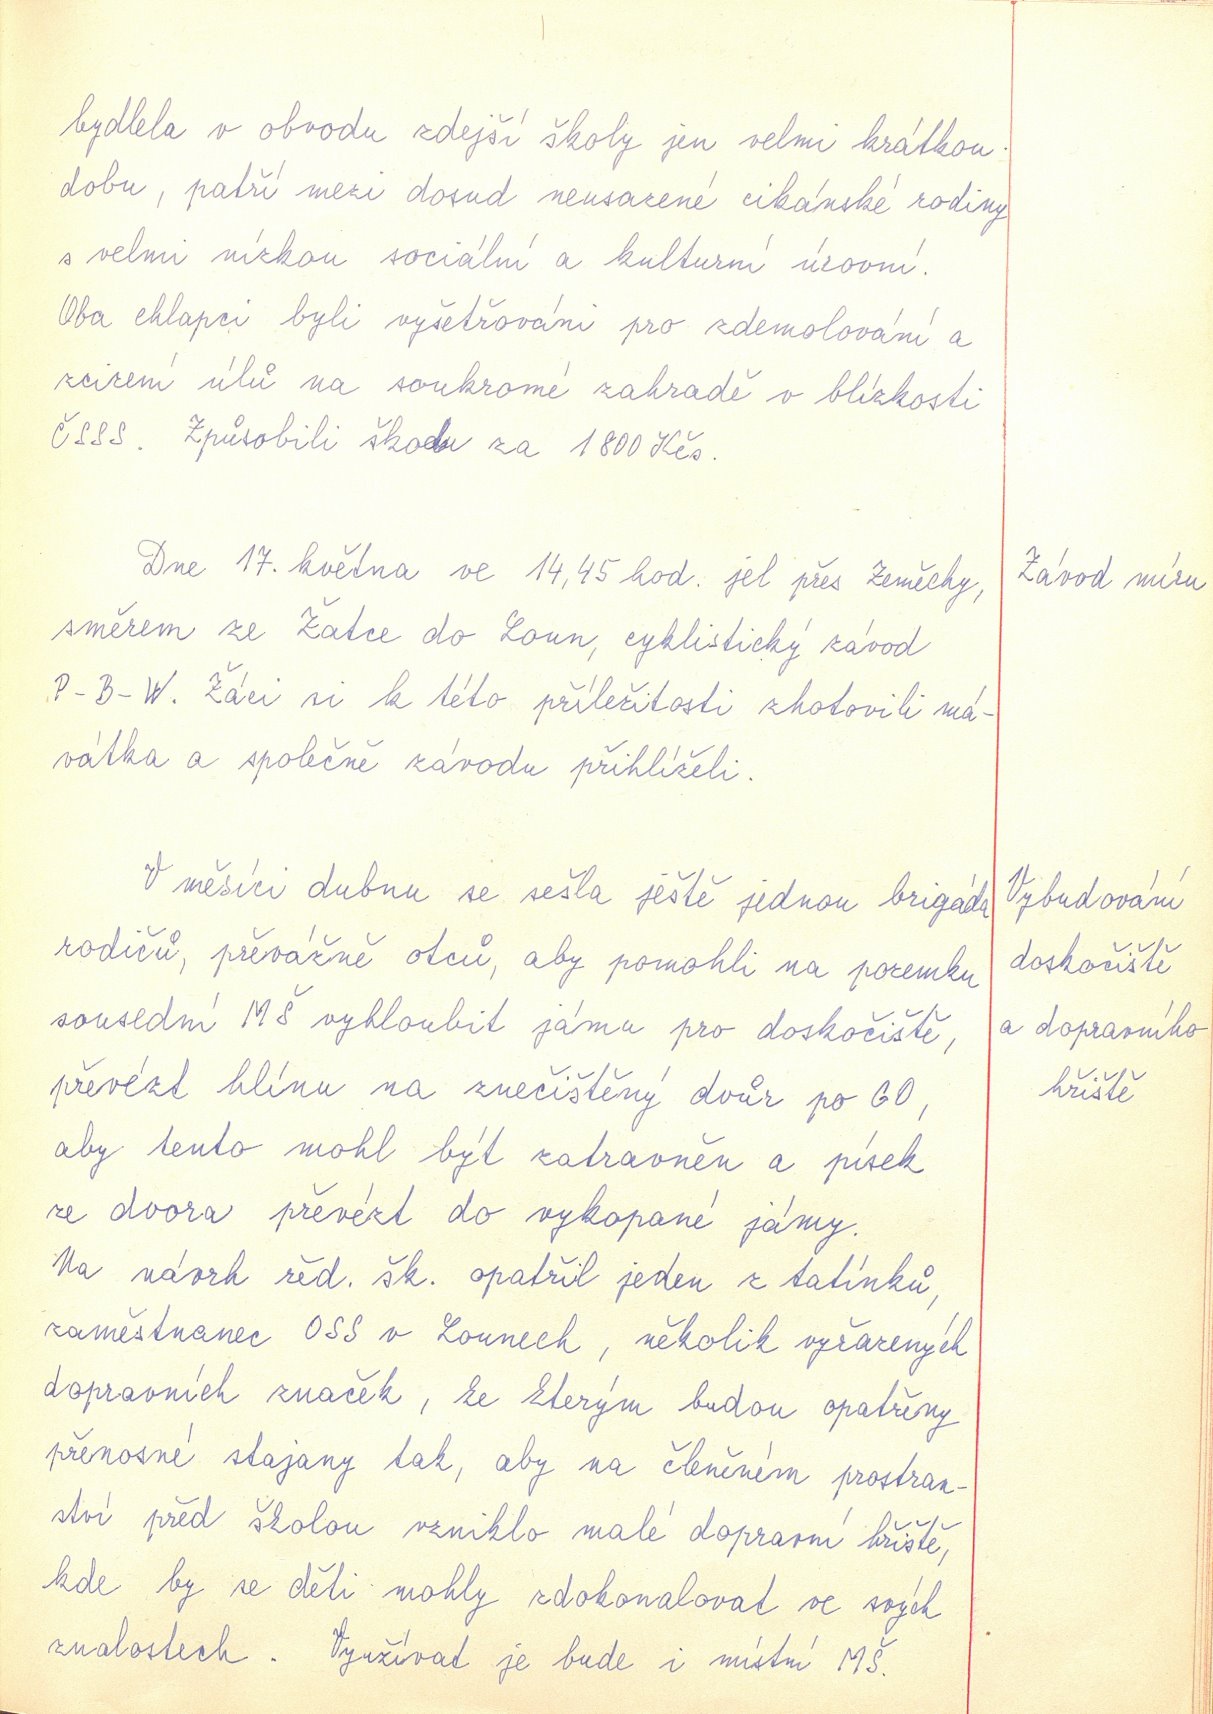 bydlela v obvodu zdejší školy jen velmi krátkou
dobu, patří mezi dosud neusazené cikánské rodiny
s velmi nízkou sociální a kulturní úrovní.
Oba chlapci byli vyšetřováni pro zdemolování a
zcizení úlů na soukromé zahradě v blízkosti
ČSSS. Způsobili škodu za 1800 Kčs.
Dne 17. května ve 14,45 hod. jel přes Zeměchy,
Závod míru
směrem ze Žatce do Loun, cyklistický závod
P-B-W. Žáci si k této příležitosti zhotovili má-
vátka a společně závodu přihlíželi.
V měsíci dubnu se sešla ještě jednou brigáda
Vybudování
rodičů, převážně otců, aby pomohli na pozemku
doskočiště
sousední MŠ vyhloubit jámu pro doskočiště,
a dopravního
převézt hlínu na znečištěný dvůr po GO,
hřiště
aby tento mohl být zatravněn a písek
ze dvora převézt do vykopané jámy.
Na návrh řed. šk. opatřil jeden z tatínků,
zaměstnanec OSS v Lounech, několik vyřazených
dopravních značek, ke kterým budou opatřeny
přenosné stojany tak, aby na členěném prostran-
ství před školou vzniklo malé dopravní hřiště,
kde by se děti mohly zdokonalovat ve svých
znalostech. Využívat je bude i místní MŠ.